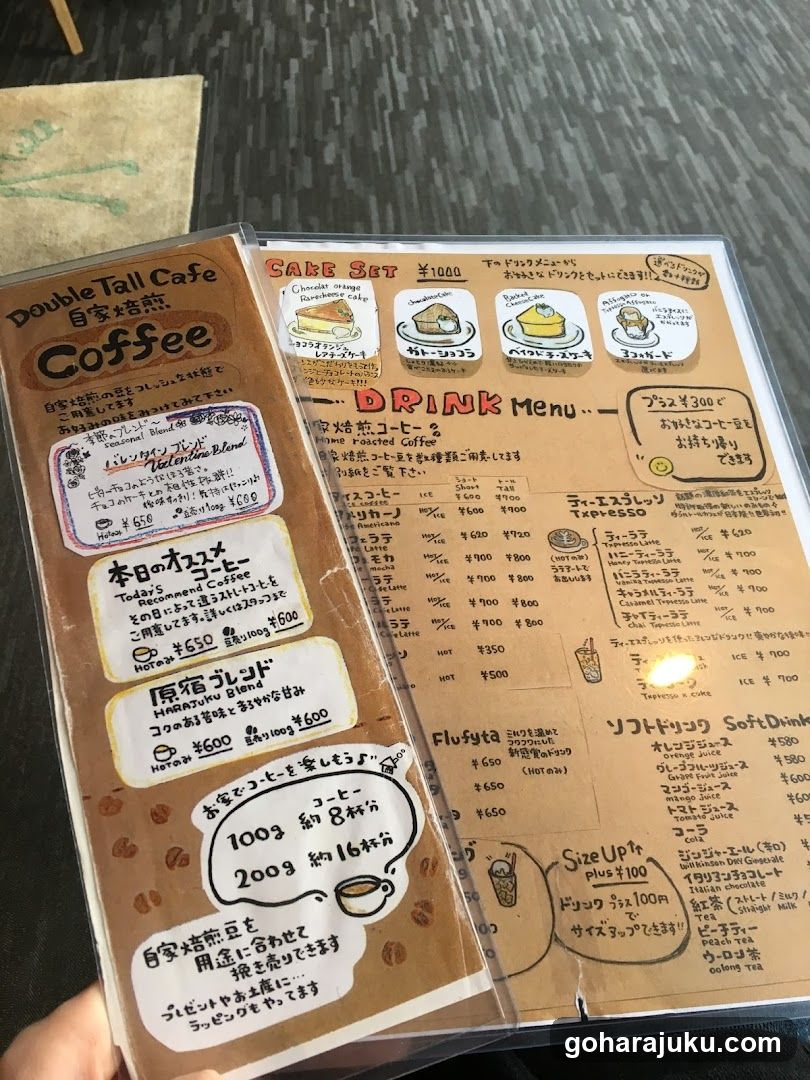 Double Tall Cafe
自家焙煎
Coffee
自家焙煎の豆をフレッシュな状態で
ご用意してます
お好みの味をみつけてみて下さい
季節のブレンド〜
seasonal Blend
バレンタインブレンド
Valentine Blend
HOTのみ ¥650 豆売り100g ¥600
本日のオススメ
コーヒー
Today's
Recommend Coffee
その日によって違うストレートコーヒーを
ご用意してます。詳しくはスタッフまで
HOTのみ ¥650 豆売り100g ¥600
原宿ブレンド
HARAJUKU Blend
コクのある苦味とまろやかな甘み
HOTのみ ¥600 豆売り100g ¥600
お家でコーヒーを楽しもう♪
コーヒー
100g 約8杯分
200g 約16杯分
自家焙煎豆を
用途に合わせて
挽き売りできます
プレゼントやお土産に…
ラッピングもやってます
CAKE SET ¥1000
下のドリンクメニューから
お好きなドリンクをセットにできます!!
Chocolat orange
Rarecheese cake
ショコラオランジュ
レアチーズケーキ
chocolate cake
ガトーショコラ
Baked
Cheese Cake
ベイクドチーズケーキ
Affogato or
Txpresso Affogato
バニラアイスに
エスプレッソが
かかってます
アフォガード
DRINK Menu
家焙煎コーヒー
Home roasted Coffee
自家焙煎コーヒー豆を数種類ご用意してます
別紙をご覧下さい
プラス¥300で
お好きなコーヒー豆を
お持ち帰り
できます
ショート
Short
トール
Tall
イスコーヒー ICE ¥600 ¥700
リカーノ HOT/ICE ¥600 ¥700
Americano
ェラテ HOT/ICE ¥620 ¥720
Latte
ェモカ HOT/ICE ¥700 ¥800
mocha
ラテ HOT/ICE ¥700 ¥800
Cafe Latte
テ HOT/ICE ¥700 ¥800
Latte
ラテ HOT/ICE ¥700 ¥800
Cafe Latte
ソ HOT ¥350
HOT ¥500
ティーエスプレッソ
Txpresso
(HOTのみ)
ラテアートで
お出しします
ティーラテ HOT/ICE ¥620
Txpresso Latte
ハニーティーラテ HOT/ICE ¥700
Honey Txpresso Latte
バニラティーラテ HOT/ICE ¥700
Vanilla Txpresso Latte
キャラメルティーラテ HOT/ICE ¥700
Caramel Txpresso Latte
チャイティーラテ HOT/ICE ¥700
chai Txpresso Latte
ティーエスプレッソを使ったアレンジドリンク!!
ICE ¥700
ICE ¥700
Txpresso x coke
Flufyta
ミルクを温めて
フワフワにした
新感覚のドリンク
(HOTのみ)
¥650
¥650
¥650
SizeUp↑↑
plus ¥100
ドリンクプラス100円
で
サイズアップできます!!
ソフトドリンク SoftDrink
オレンジジュース ¥580
orenge Juice
グレープフルーツジュース ¥580
Grape Fruit Juice
マンゴージュース
mango Juice
トマトジュース
Tomato Juice
コーラ
cola
ジンジャーエール(辛口)
Willkinson DRY Gingerale
イタリアンチョコレート
Italian chocolate
紅茶(ストレート/ミルク/
Tea Straight Milk
ピーチティー
Peach Tea
ウーロン茶
Oolong Tea
goharajuku.com